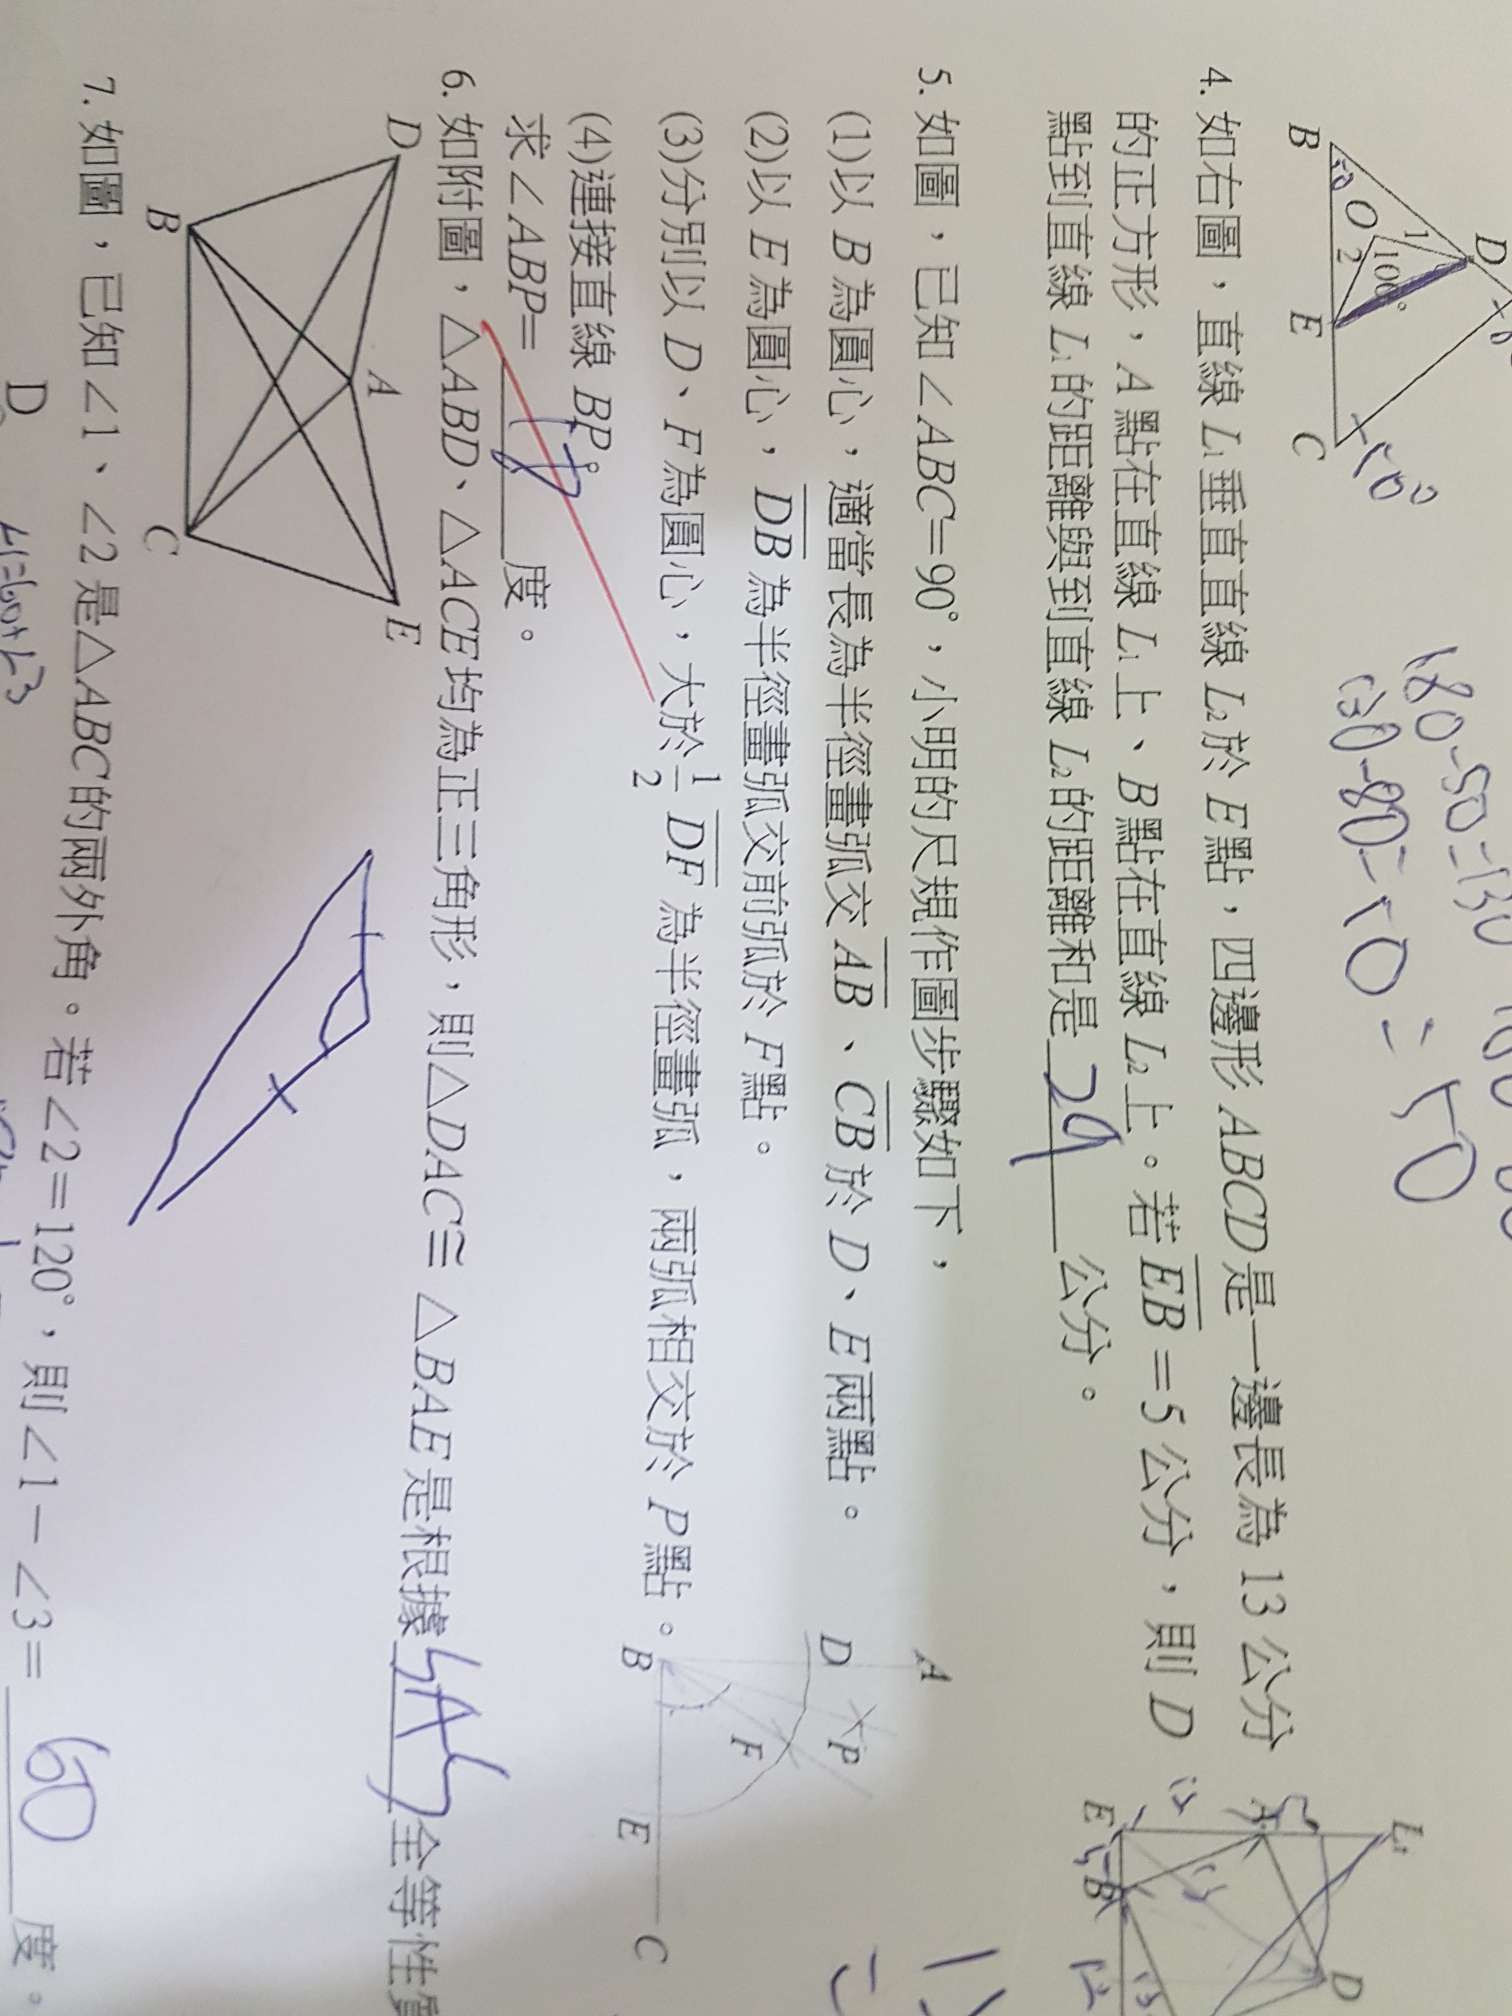 B
50
O
1
2
100°
D
E
C
50°
180-50=130
130-80=50
=50
4. 如右圖，直線 L₁垂直直線 L₂於 E點，四邊形 ABCD是一邊長為 13 公分
的正方形，A 點在直線 L₁上、B點在直線 L₂上。若 EB = 5 公分，則 D
點到直線 L₁的距離與到直線 L₂的距離和是 29 公分。
L₁
A
D
E
B
13
5
12
13
5. 如圖，已知∠ABC=90°，小明的尺規作圖步驟如下，
(1)以 B 為圓心，適當長為半徑畫弧交 AB、CB於 D、E兩點。
(2)以 E 為圓心，DB 為半徑畫弧交前弧於 F點。
(3)分別以 D、F為圓心，大於 1/2 DF 為半徑畫弧，兩弧相交於 P點。
(4)連接直線 BP。
求∠ABP= 15 度。
A
D
P
F
B
E
C
6. 如附圖，△ABD、△ACE均為正三角形，則△DAC≅ △BAE是根據 SAS 全等性質
D
A
E
B
C
7. 如圖，已知∠1、∠2是△ABC的兩外角。若∠2=120°，則∠1－∠3= 60 度。
D
∠1=60+∠3